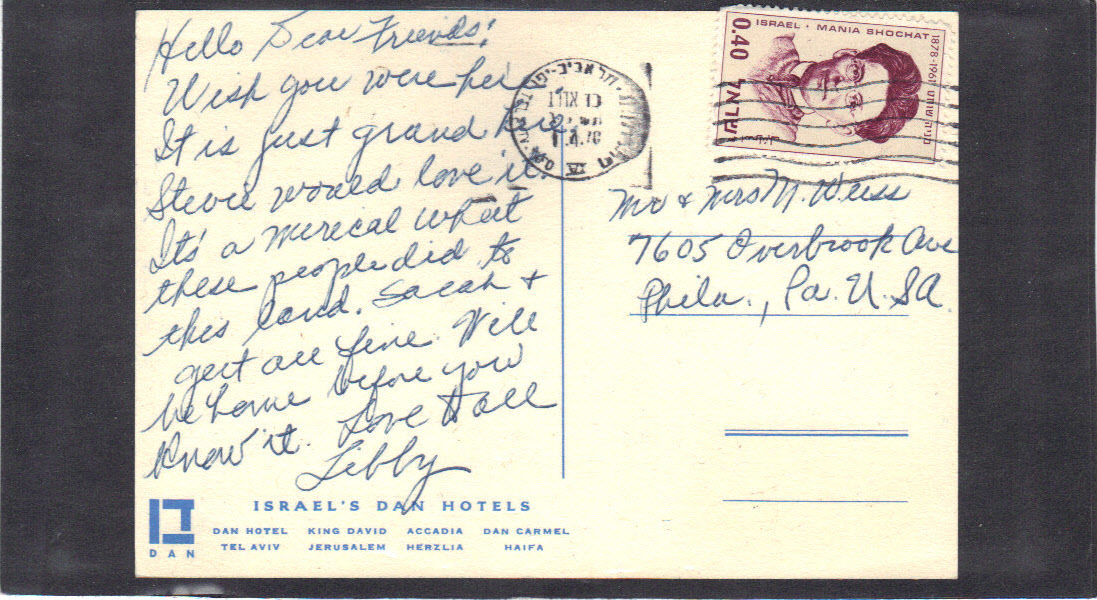 Hello Dear Friends!
Wish you were here
It is just grand here
Stevie would love it.
It's a merical what
these people did to
this land. Sarah +
gert are fine. Will
be home before you
know it. Love to all
Libby
ISRAEL'S DAN HOTELS
DAN HOTEL KING DAVID ACCADIA DAN CARMEL
TEL AVIV JERUSALEM HERZLIA HAIFA
DAN
ISRAEL · MANIA SHOCHAT
1878-1961 מניה שוחט
0.40 ישראל
תל אביב-יפו
Mr & Mrs N. Weiss
7605 Overbrook Ave
Phila., Pa. U.SA